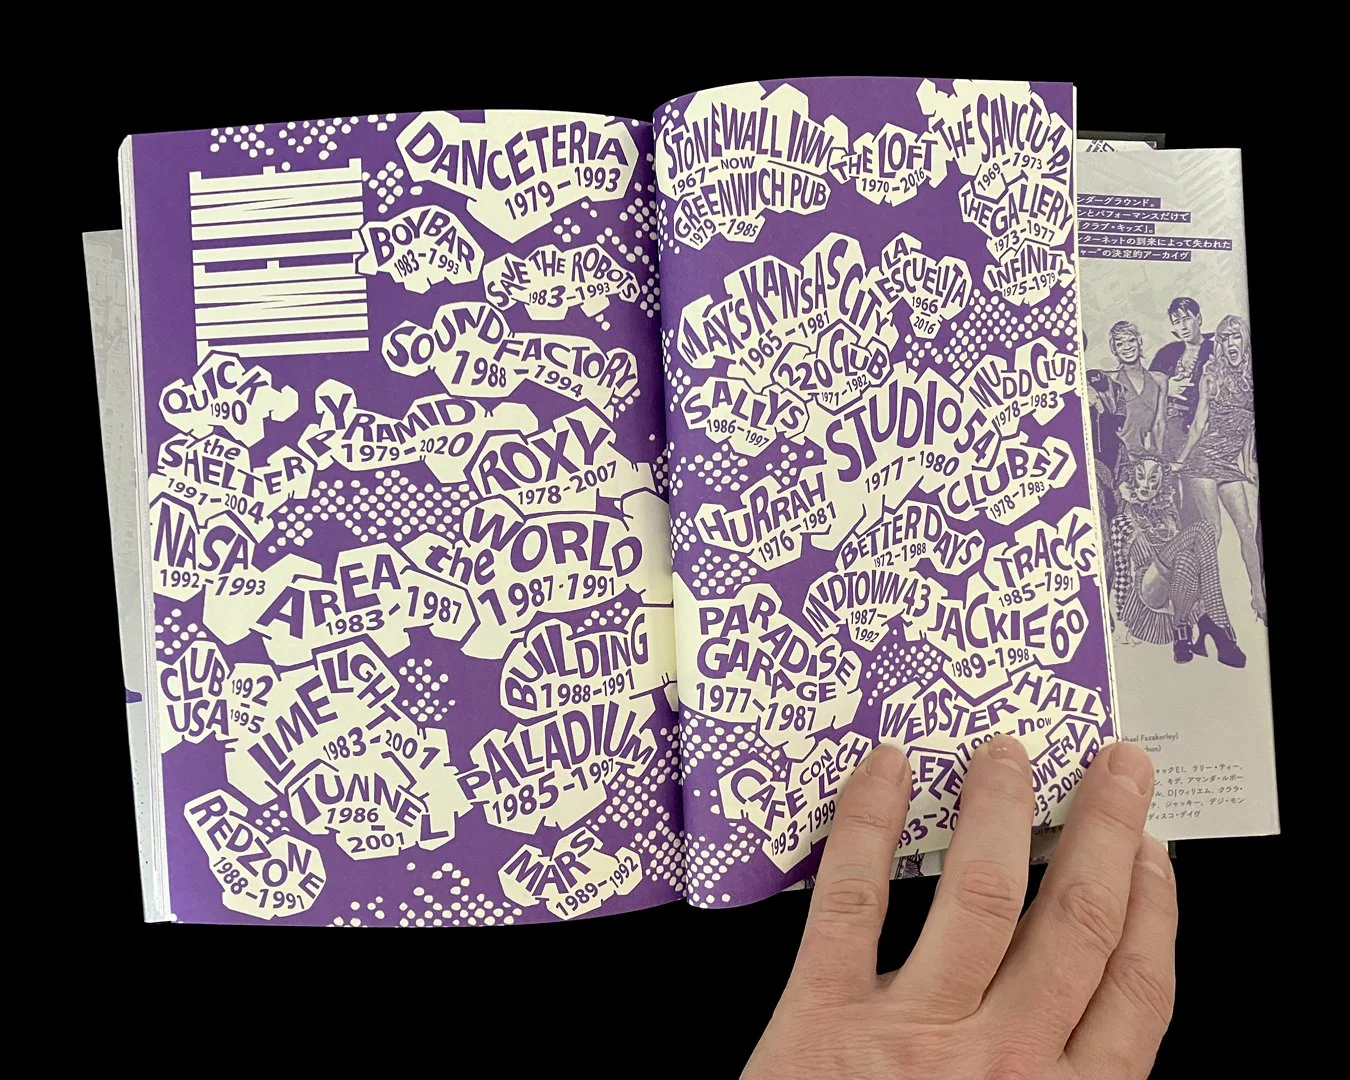 DANCETERIA
1979-1993
BOYBAR
1983-1993
SAVE THE ROBOTS
1983-1993
SOUND FACTORY
1988-1994
QUICK
1990
PYRAMID
1979-2020
the
SHELTER
1991-2004
ROXY
1978-2007
NASA
1992-1993
the WORLD
1987-1991
AREA
1983-1987
BUILDING
1988-1991
CLUB
USA
1992
-
1995
LIMELIGHT
1983-2001
PALLADIUM
1985-1997
TUNNEL
1986-
2001
REDZONE
1988-1991
MARS
1989-1992
STONEWALL INN
1967-NOW
GREENWICH PUB
1979-1985
THE LOFT
1970-2016
THE SANCTUARY
1969-1973
THE GALLERY
1973-1977
INFINITY
1975-1979
LA
ESCUELITA
1966-
2016
MAX'S KANSAS CITY
1965-1981
220 CLUB
1971-1982
SALLYS
1986-1997
STUDIO 54
1977-1980
MUDD CLUB
1978-1983
CLUB 57
1978-1983
HURRAH
1976-1981
BETTER DAYS
1972-1988
TRACKS
1985-1991
MIDTOWN 43
1987-
1992
JACKIE 60
1989-1998
PARADISE
GARAGE
1977-1987
WEBSTER HALL
now
CAFE CON LECHE
1993-1999
ンダーグラウンド。
ンとパフォーマンスだけで
クラブ・キッズ」。
ターネットの到来によって失われた
ャー"の決定的アーカイヴ
chael Fazakerley)
ャックE1、ラリー・ティー、
ン、キデ、アマンダ・ルポー
ル、DJウィリエム、クララ・
チ、ジャッキー、デジ・モン
ディスコ・デイヴ